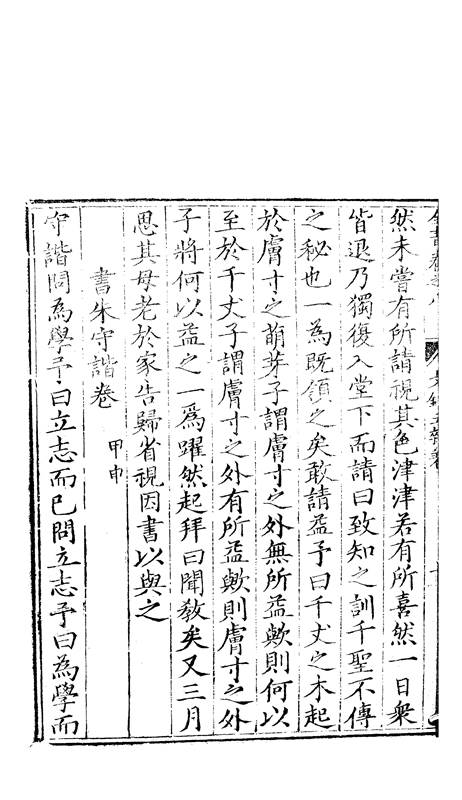 全書卷之八
然未嘗有所請視其色津津若有所喜然一日衆
皆退乃獨復入堂下而請曰致知之訓千聖不傳
之秘也一為既領之矣敢請益予曰千丈之木起
於膚寸之萌芽子謂膚寸之外無所益歟則何以
至於千丈子謂膚寸之外有所益歟則膚寸之外
子將何以益之一爲躍然起拜曰聞敎矣又三月
思其母老於家告歸省視因書以與之
書朱守諧卷 甲申
守諧問為學予曰立志而已問立志予曰為學而